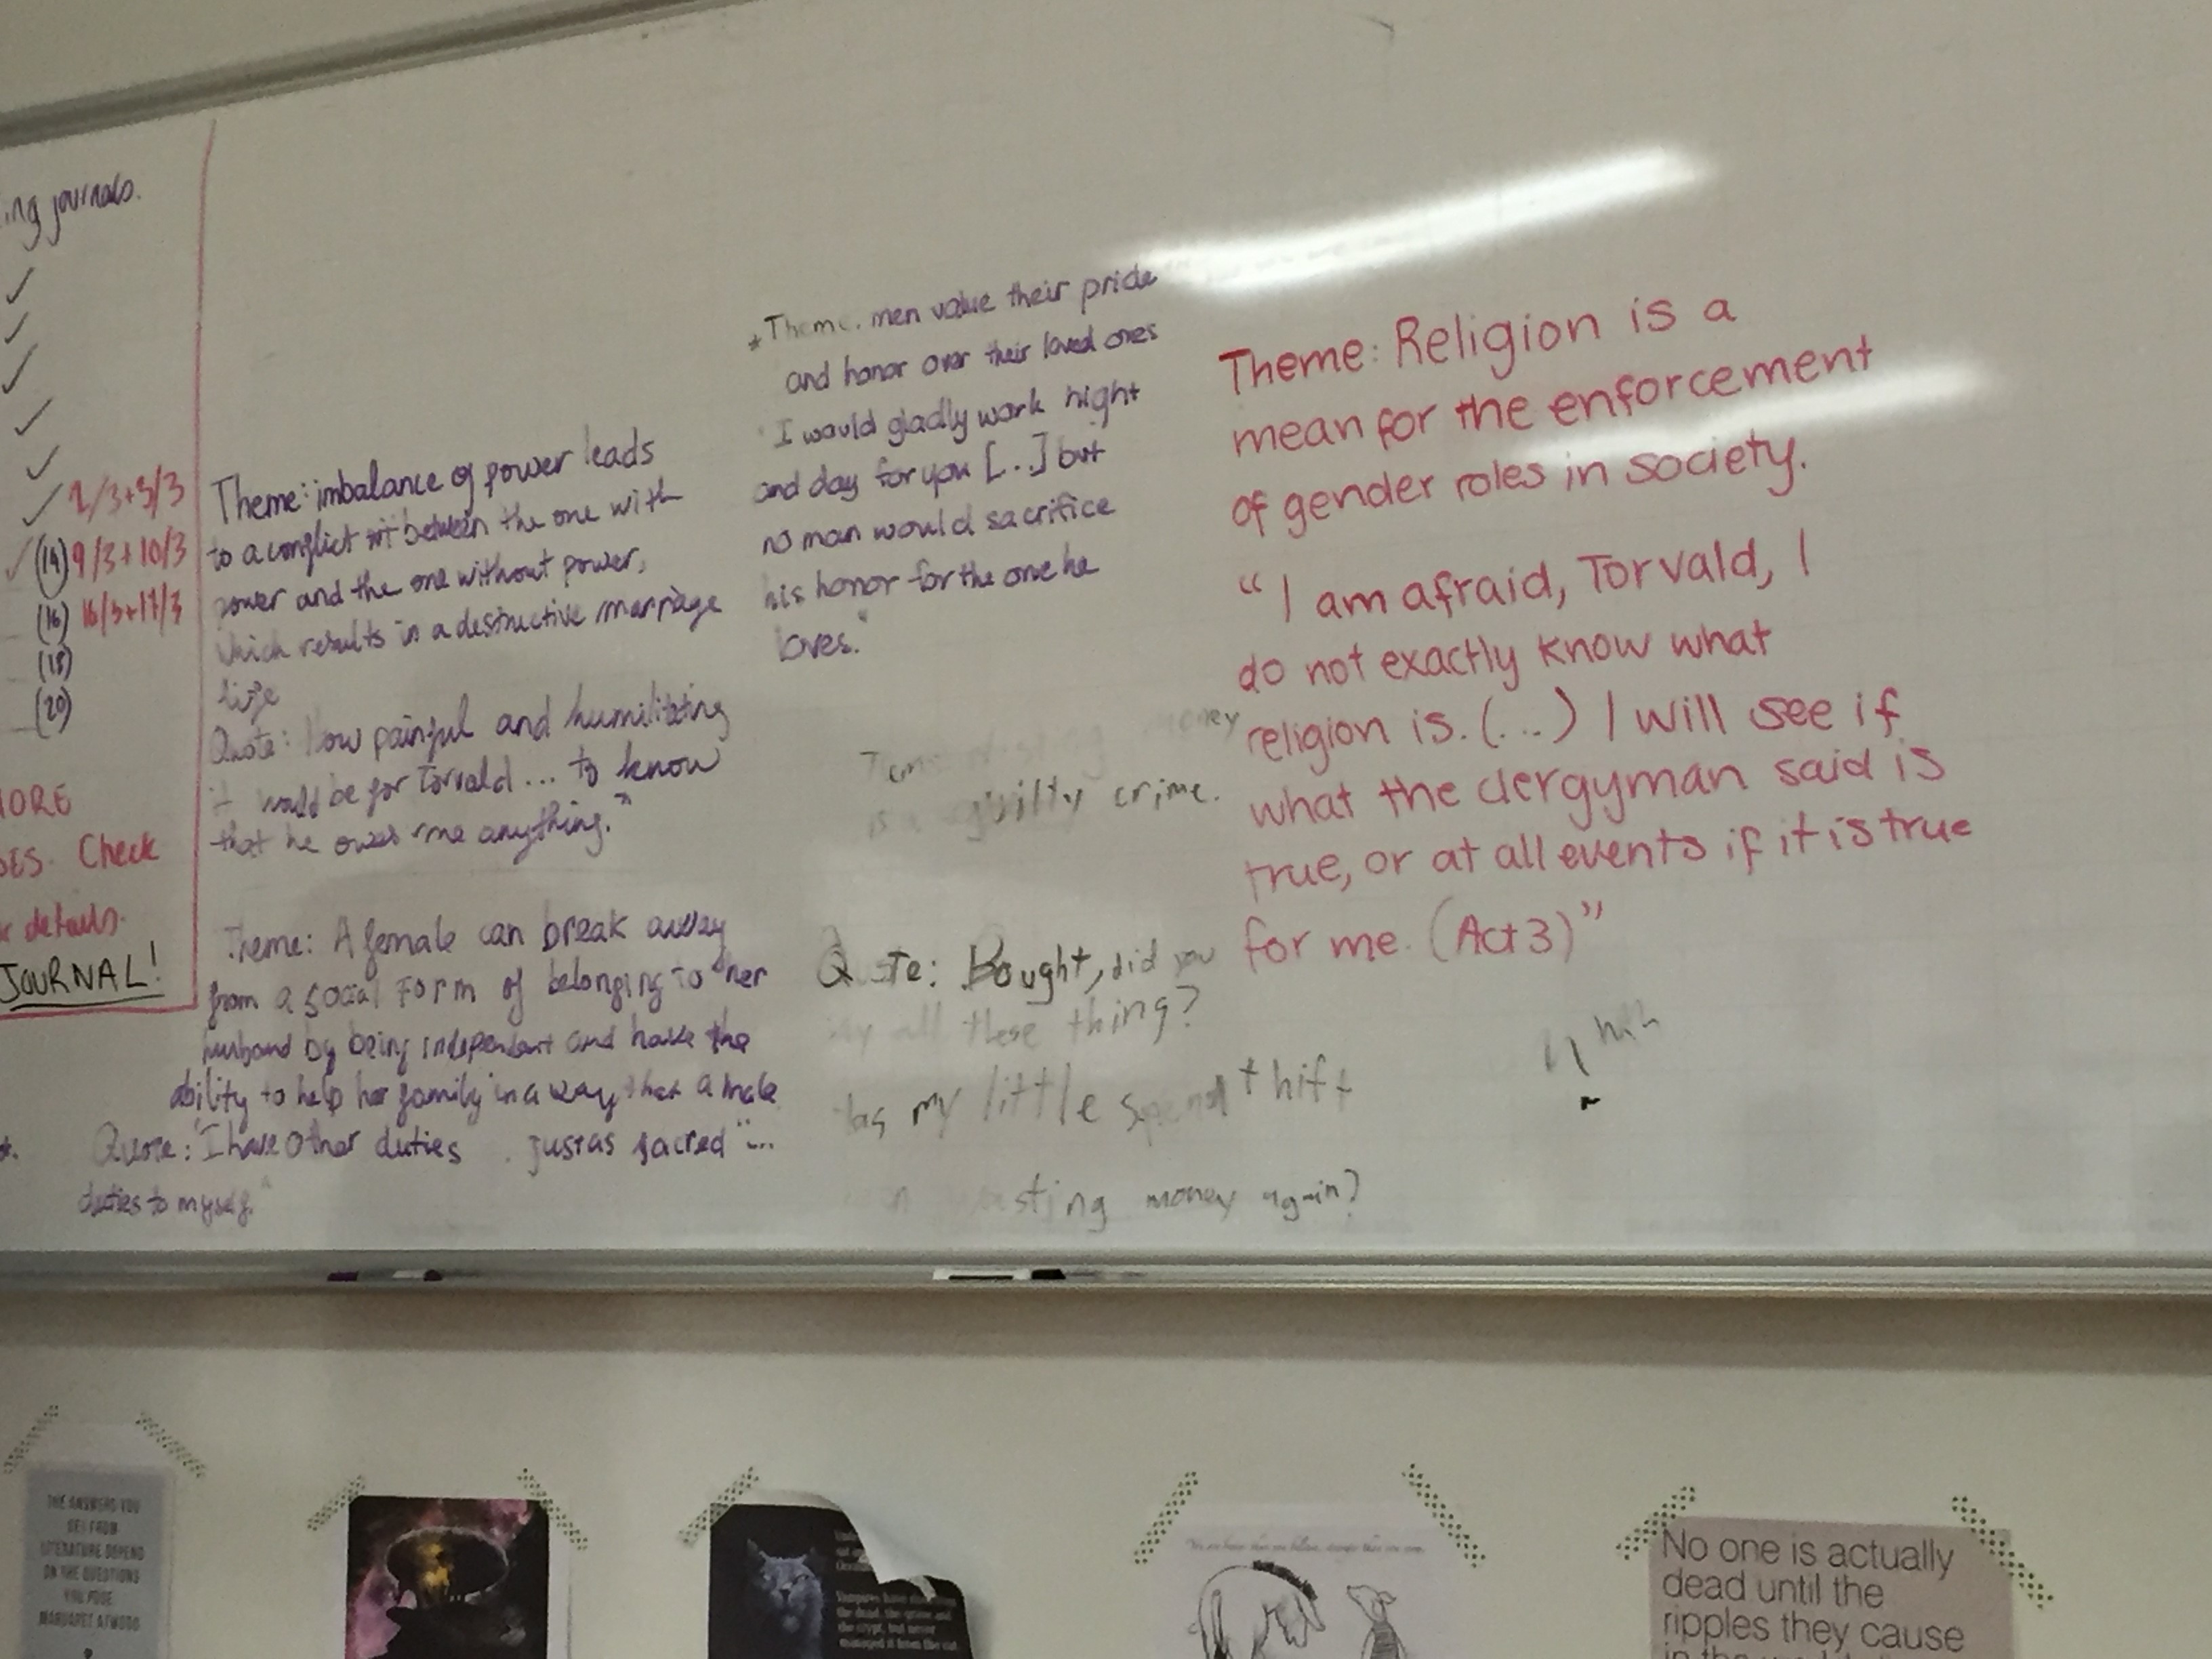 ing journals.
2/3+3/3
(14) 9/3+10/3
(16) 16/3+17/3
(18)
(20)
MORE
DES. Check
r details.
JOURNAL!
Theme: imbalance of power leads
to a conflict between the one with
power and the one without power,
which results in a destructive marriage
life
Quote: How painful and humilitating
it would be for Torvald... to know
that he owes me anything."
Theme: A female can break away
from a social form of belonging to her
husband by being independent and have the
ability to help her family in a way that a male
Quote: "I have other duties . just as sacred "...
duties to myself."
* Theme. men value their pride
and honor over their loved ones
"I would gladly work night
and day for you [..] but
no man would sacrifice
his honor for the one he
loves."
money
is a guilty crime.
Quote: Bought, did you
all these thing?
Has my little spendthift
sting money again?
Theme: Religion is a
mean for the enforcement
of gender roles in society.
"I am afraid, Torvald, I
do not exactly know what
religion is. (...) I will see if
what the clergyman said is
true, or at all events if it is true
for me. (Act 3)"
THE ANSWERS YOU
GET FROM
LITERATURE DEPEND
ON THE QUESTIONS
YOU POSE
MARGARET ATWOOD
Vampires have
the dead, the grave and
the crypt, but never
managed it from the cat.
No one is actually
dead until the
ripples they cause
in the world